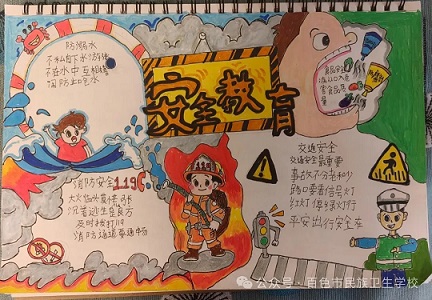 安全教育
防溺水
不私自下水游泳
不在水中互相嬉
消防安全119
大火临头最怕乱
沉着逃生是良方
及时拨打119
消防通道要通畅
交通安全
交通安全最重要
事故不分老和少
路口要看信号灯
红灯停绿灯行
平安出行安全在
公众号·百色市民族卫生学校